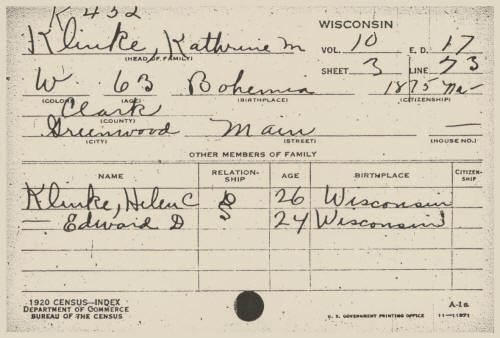 K 452
WISCONSIN
Klinke, Kathrine M
(HEAD OF FAMILY)
VOL. 10 E. D. 17
SHEET 3 LINE 73
W 63 Bohemia 1875 Na-
(COLOR) (AGE) (BIRTHPLACE) (CITIZENSHIP)
Clark
(COUNTY)
Greenwood Main —
(CITY) (STREET) (HOUSE NO.)
OTHER MEMBERS OF FAMILY
NAME RELATION-SHIP AGE BIRTHPLACE CITIZEN-SHIP
Klinke, Helen C 26 Wisconsin
— Edward D S 24 Wisconsin
1920 CENSUS—INDEX
DEPARTMENT OF COMMERCE
BUREAU OF THE CENSUS
A-1a
U. S. GOVERNMENT PRINTING OFFICE 11—11871